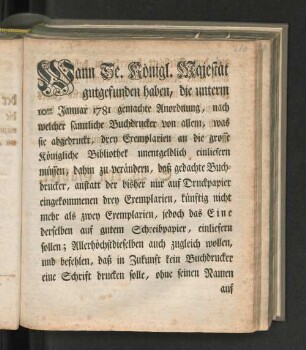 Wann Se. Königl. Majestät
gutgefunden haben, die unterm
10ten Januar 1781 gemachte Anordnung, nach
welcher sämtliche Buchdrucker von allem, was
sie abgedruckt, drey Exemplarien an die grosse
Königliche Bibliothek unentgeldlich einliefern
müssen, dahin zu verändern, daß gedachte Buch-
drucker, anstatt der bisher nur auf Druckpapier
eingekommenen drey Exemplarien, künftig nicht
mehr als zwey Exemplarien, jedoch das Eine
derselben auf gutem Schreibpapier, einliefern
sollen; Allerhöchstdieselben auch zugleich wollen,
und befehlen, daß in Zukunft kein Buchdrucker
eine Schrift drucken solle, ohne seinen Namen
auf